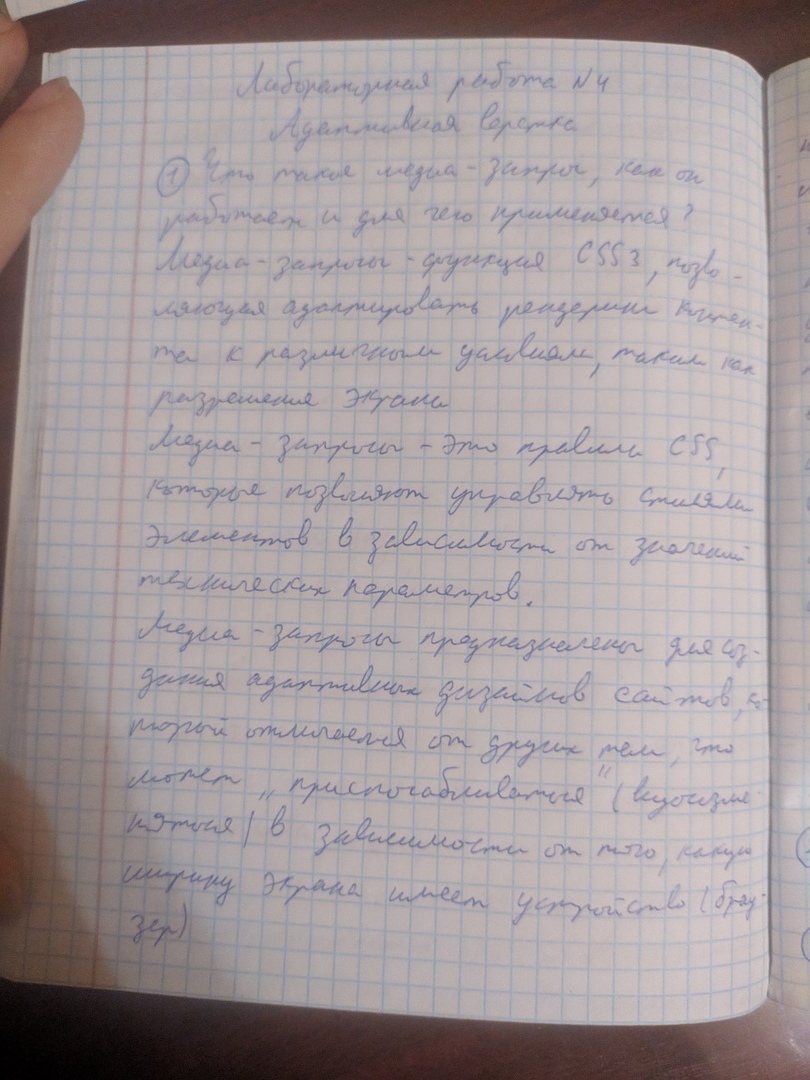 Лабораторная работа N4
Адаптивная верстка
① Что такое медиа-запрос, как он
работает и для чего применяется?
Медиа-запросы - функция CSS3, позво-
ляющая адаптировать рендеринг контен-
та к различным условиям, таким как
разрешения экрана
Медиа-запросы - это правила CSS,
которые позволяют управлять стилями
элементов в зависимости от значений
технических параметров.
Медиа-запросы предназначены для соз-
дания адаптивных дизайнов сайтов, ко-
торый отличается от других тем, что
может „приспосабливаться" (видоизме-
няться) в зависимости от того, какую
ширину экрана имеет устройство (брау-
зер)